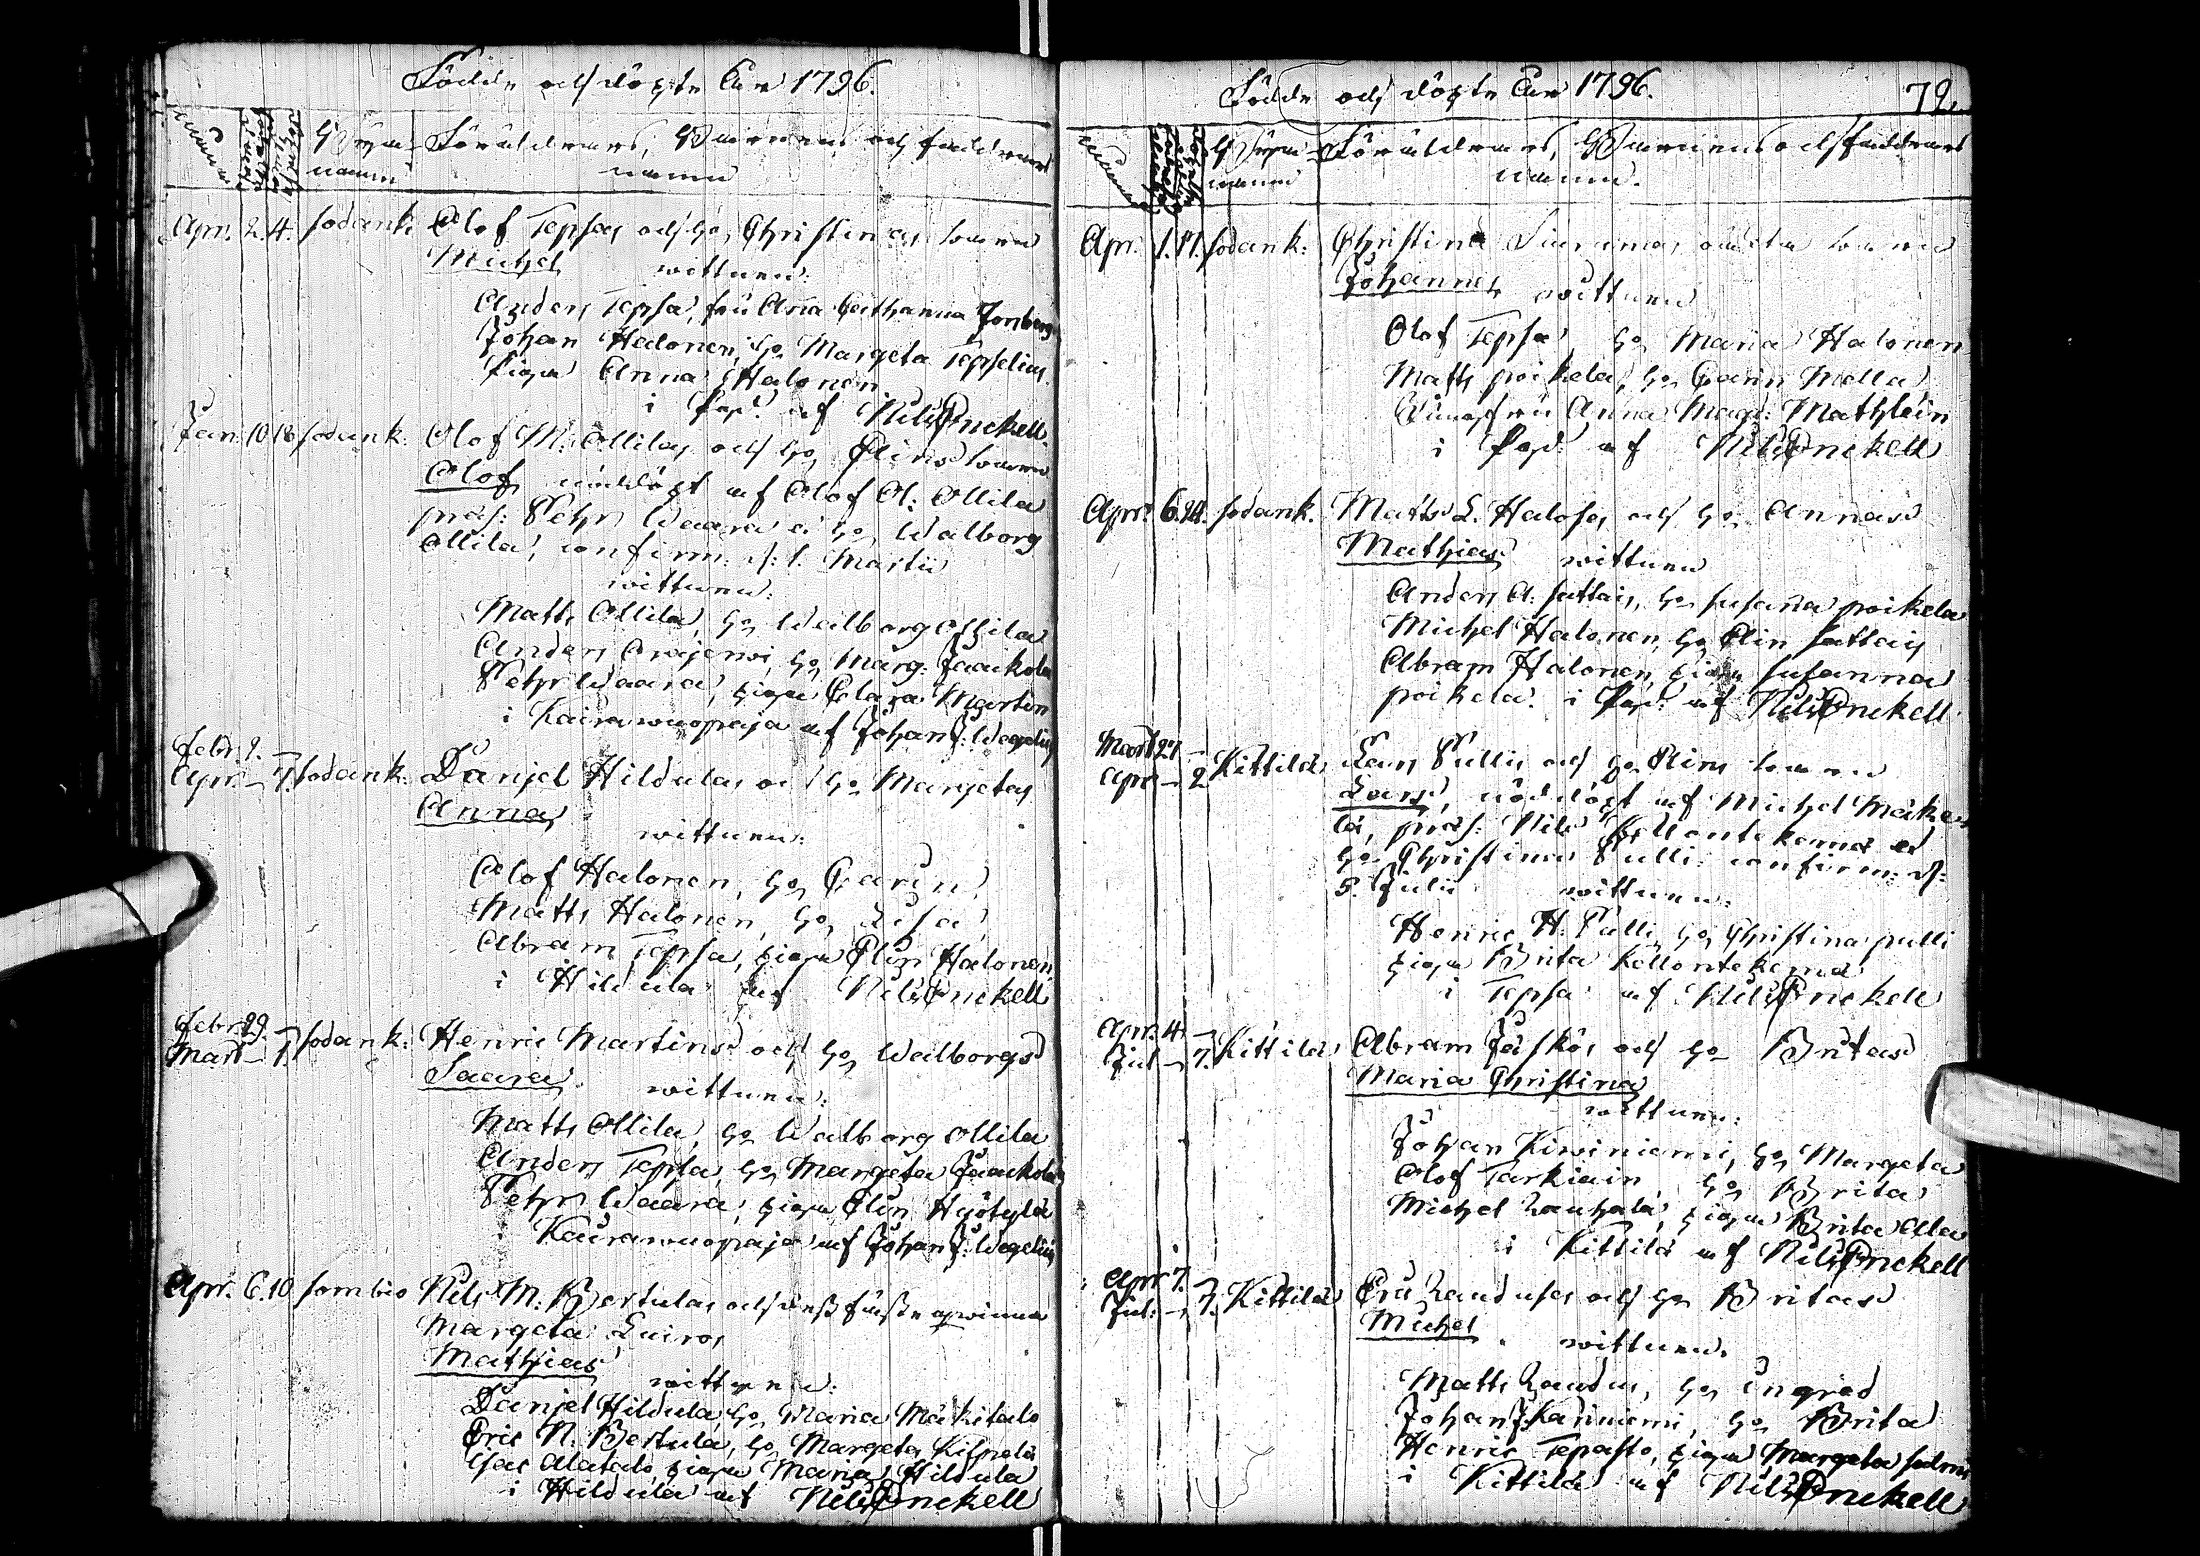 Födde och döpte Åhr 1796.
Byns namn
Föräldrars, Barnens och faddrars namn
Apr. 2. 4. Sodank: Olof Tepsas och h:s Christinas
Michel wittnen:
Anders Tepsa, fru Anna Catharina
Johan Halonen, h:s Margeta Tepselius
Piga Anna Halonen
i Pred: af Nils Fnckell
Jan: 10 Sodank: Olof M: Ollilas och h:s Elins
Olof nöddöpt af Olof O: Ollila
præs: Pehr Waara a: h:s Walborg
Ollila, confirm: d: 1. Martii
wittnen:
Matts Ollila, h:s Walborg Ollila
Anders Arajerwi, h:s Marg: Jaakola
Pehr Waara, piga Clara Martin
i Kairawuopaja af Johan J: Wegelius
Febr. 9.
Apr. – 7. Sodank: Danjel Hildulas och h:s Margetas
Anna
wittnen:
Olof Halonen, h:s Carin
Matts Halonen, h:s Lisa
Abram Tepsa, piga Elin Halonen
i Hildula af Nils Fnckell
Febr. 29.
Mart – 1. Sodank: Henric Martins och h:s Walborgs
Saara wittnen:
Matts Ollila, h:s Walborg Ollila
Anders Tepsa, h:s Margeta Jaakola
Pehr Waara, piga Elin Hyötylä
Kairawuopaja af Johan J: Wegelius
Apr. 6. 10 Sombio Nils M: Bertulas och
Margeta Luiros
Mathias
wittnen:
Danjel Hildula h:s Maria Mäkitalo
Eric N. Bertula, h:s Margeta Kilpelä
Isac Alatalo, piga Maria Hildula
i Hildula af Nils Fnckell
Födde och döpte Åhr 1796. 72.
Byns namn
Föräldrars, Barnens och faddrars namn.
Apr. 1. 17. Sodank: Christina
Johannes wittnen
Olof Tepsa h:s Maria Halonen
Matts Poikela, h:s Carin Mella
Jungfru Anna Magd: Mathlein
i Pred: af Nils Fnckell
Apr: 6. 24. Sodank. Matts L. Halosas och h:s Annas
Mathias wittnen
Anders A: Sattais, h:s Susanna Poikela
Michel Halonen, h:s Elin Sattais
Abram Halonen, piga Susanna
Poikela. i Pred: af Nils Fnckell
Mart 27 –
Apr – 2 Kittilä Lars Pullis och h:s Elins
Lars, nöddöpt af Michel Mäke-
lä, præs: Nils Kellontekemä a
h:s Christina Pulli: confirm: d:
5. Julii wittnen:
Henric H. Pulli, h:s Christina Pulli
piga Brita Kellontekemä
i Tepsa af Nils Fnckell
Apr. 4. –
Jul – 7. Kittilä Abram Jäskös och h:s Britas
Maria Christina
wittnen:
Johan Kiwiniemi, h:s Margeta
Olof Tarkiain h:s Brita
Michel Rauhala, piga Brita Ala
i Kittilä af Nils Fnckell
Apr 7. –
Jul: – 7. Kittilä Eric Randusas och h:s Britas
Michel
wittnen.
Matts Randus, h:s Ingred
Johan J: Kauniemi, h:s Brita
Henric Tepasto, piga Margeta
i Kittilä af Nils Fnckell